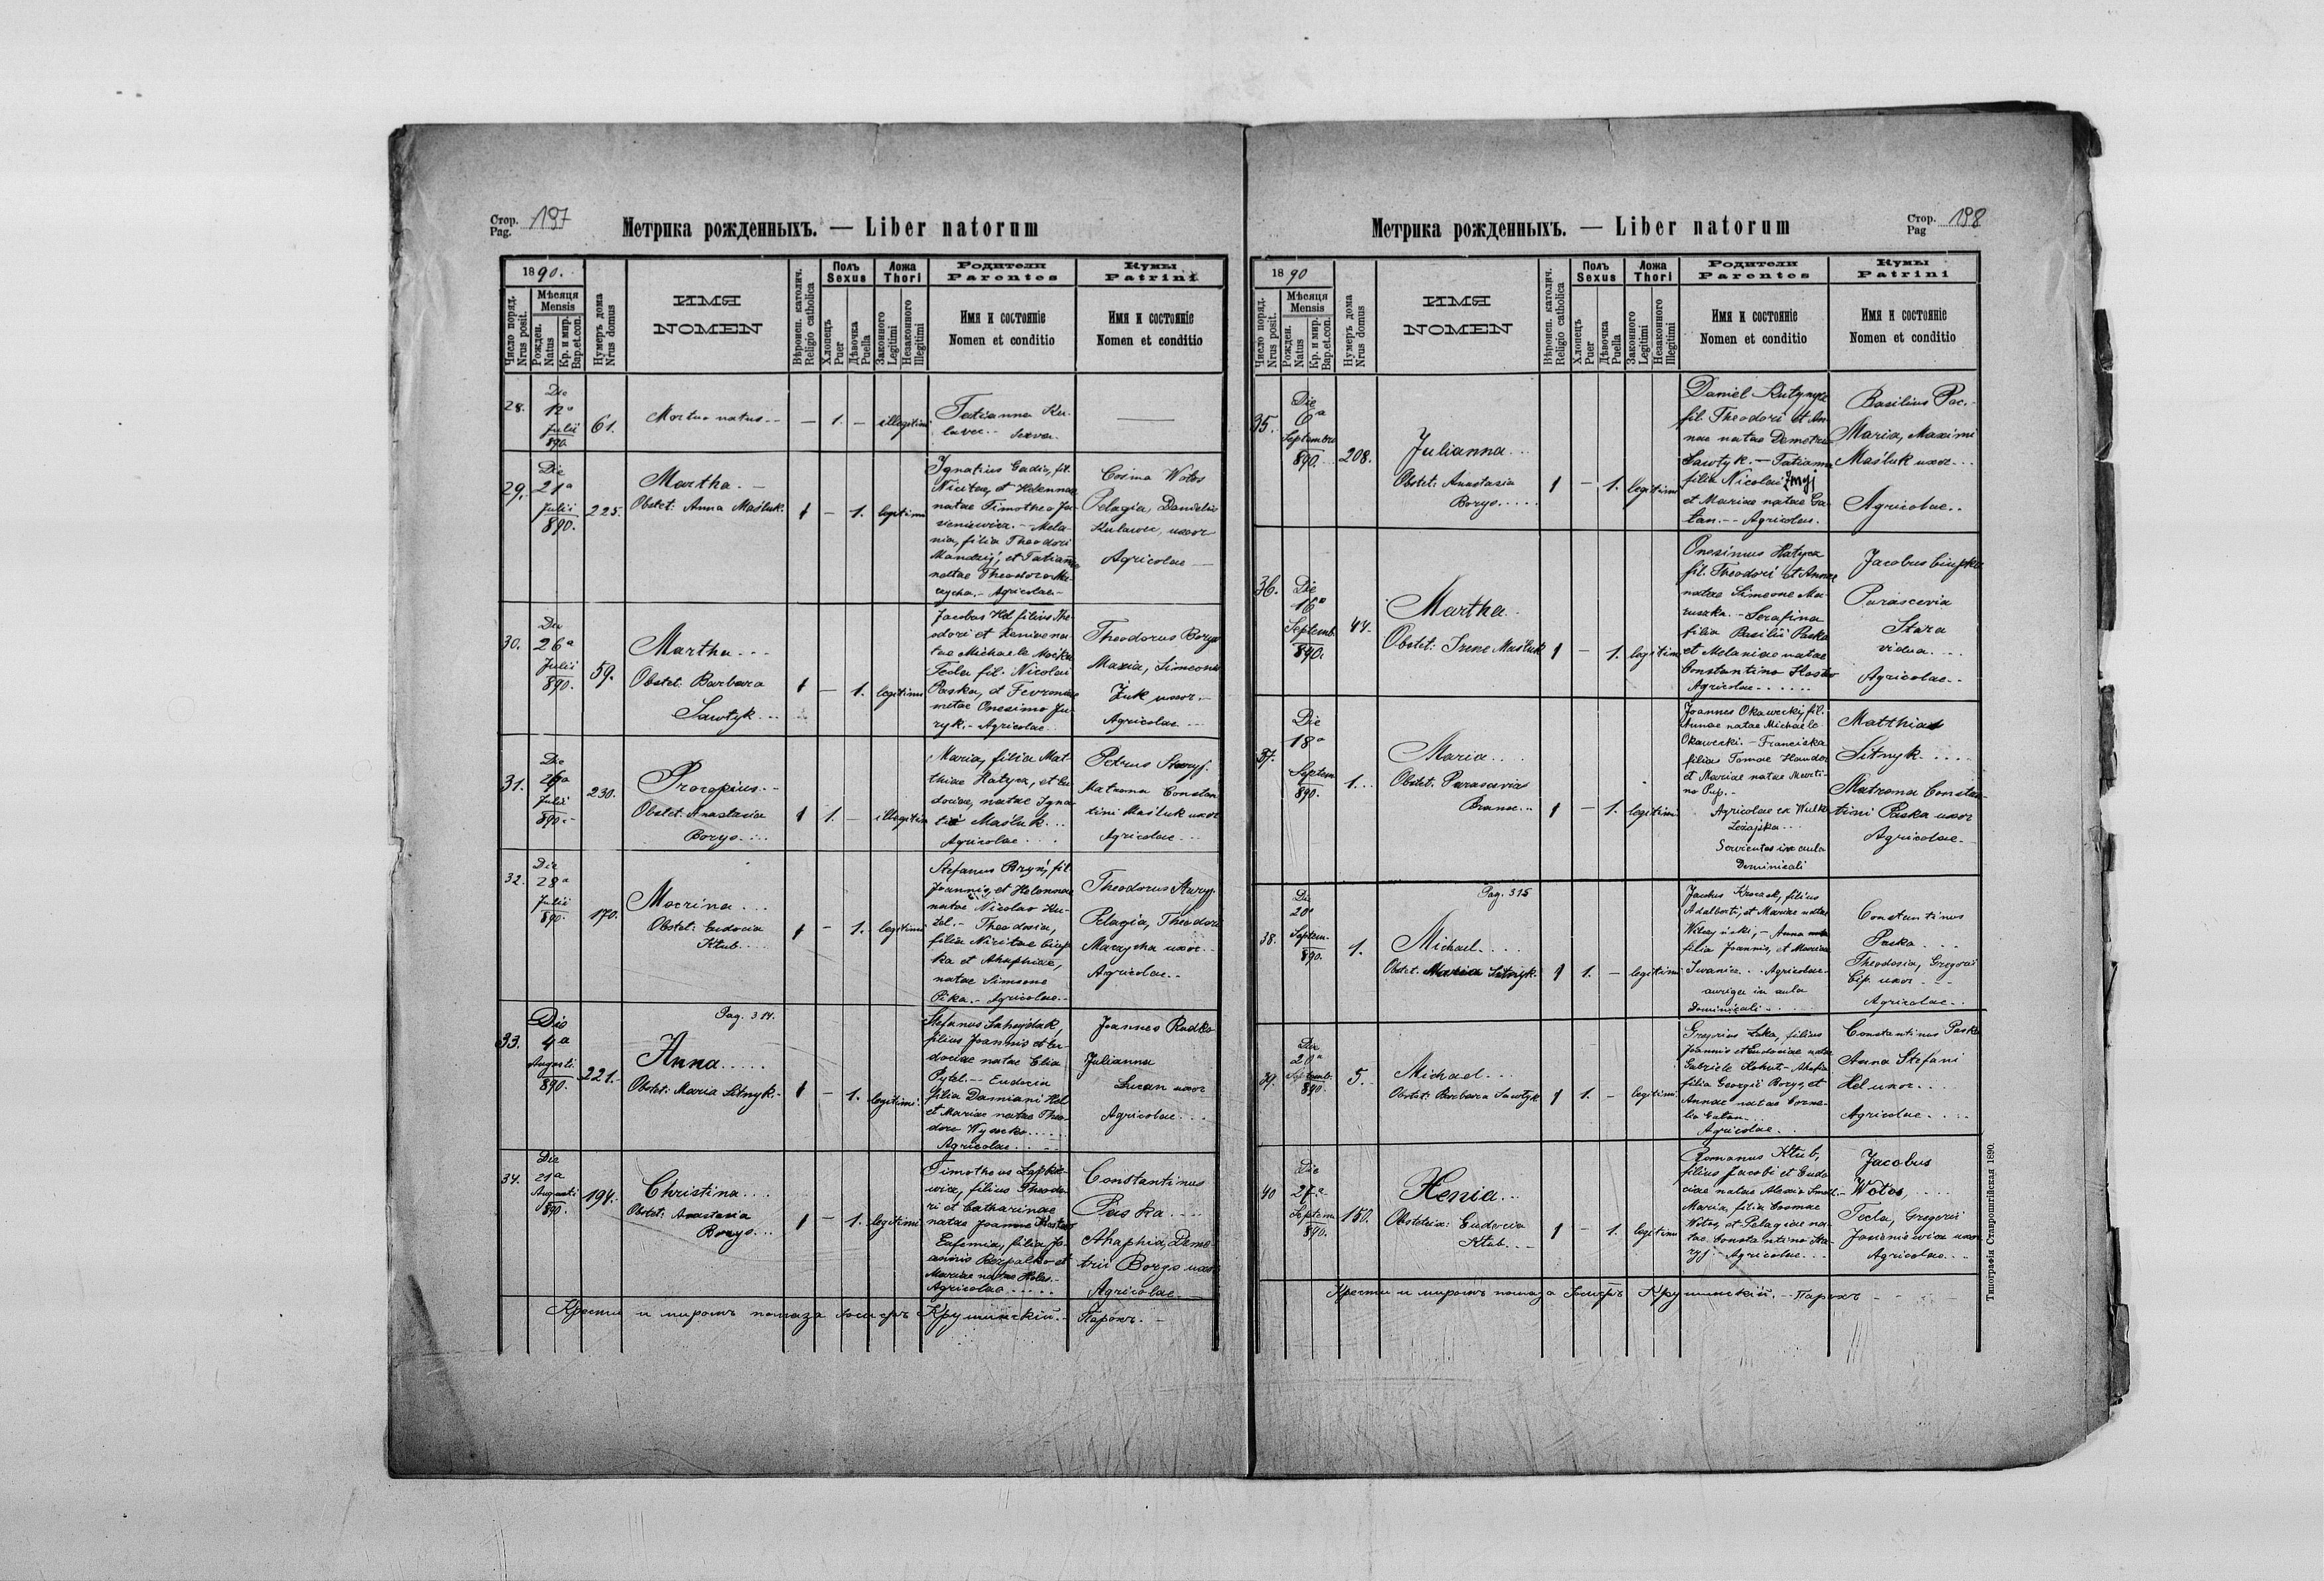 Стор. Pag. 197
Метрика рожденныхъ. — Liber natorum
1890.
Число поряд. Nrus posit.
Мѣсяця Mensis
Рожден. Natus
Кр. и мир. Bap.et.con.
Нумеръ дома Nrus domus
ИМЯ
NOMEN
Вѣроиспов. католич. Religio catholica
Полъ Sexus
Хлопецъ Puer
Дѣвочка Puella
Ложа Thori
Законного Legitimi
Незаконного Illegitimi
Родители
Parentes
Имя и состоянiе
Nomen et conditio
Кумы
Patrini
Имя и состоянiе
Nomen et conditio
28.
Die
12a
Julii
890.
61.
Mortuo natus --
— 1. — illegitimi
Tatianna Ku-
lawec - serva.
29.
Die
21a
Julii
890.
225.
Martha. —
Obstet: Anna Maśluk.
1 — 1. legitimi
Ignatius Gadio, fil.
Nicitae, et Helennae
natae Timotheo Ja-
sieniewicz. - Mela-
nia, filia Theodori
et Tatiannae
natae Theodoro
- Agricolae -
Cosma Wołos
Pelagia, Danielis
Kulawec, uxor
Agricolae —
30.
Die
26a
Julii
890.
59.
Martha...
Obstet: Barbara
Sawtyk...
1 — 1. legitimi
Jacobus Hel filius The-
odori et Xeniae na-
tae Michaele
Tecla fil. Nicolai
Paska, et Fevroniae
natae Onesimo Ju-
ryk. - Agricolae
Theodorus Borys
Maria, Simeonis
Żuk uxor. -
Agricolae —
31.
Die
26a
Julii
890. -
230.
Procopius. -
Obstet: Anastasia
Borys....
1 1. — illegitimi
Maria, filia Mat-
thiae Hatyca, et Eu-
dociae, natae Igna-
tio Maśluk...
Agricolae....
Petrus Staryj.
Matrona Constan-
tini Maśluk uxor
Agricolae...
32.
Die
28a
Julii
890.
170.
Macrina...
Obstet: Eudocia
Kłub....
1 — 1. legitimi
Stefanus Bryń, fil
Joannis, et Helennae
natae Nicolao Ku-
zel. - Theodosia,
filia Nicitae Ciup-
ka et Ahaphiae,
natae Simeone
Pika. - Agricolae. -
Theodorus Staryj.
Pelagia, Theodori
Macycha uxor...
Agricolae...
33.
Die
4a
Augusti
890.
221.
Pag. 314.
Anna.....
Obstet: Maria Sitnyk. -
1 — 1. legitimi
Stefanus Sahajdak,
filius Joannis et Eu-
dociae natae Elia
Pytel. - Eudocia
filia Damiani Hel
et Mariae natae Theo-
doro Wysocko.....
Agricolae.....
Joannes Rudko
Julianna
Lucan uxor
Agricolae...
34.
Die
21a
Augusti
890.
194.
Christina....
Obstet: Anastasia
Borys...
1 — 1. legitimi
Timotheus Łapkie-
wicz, filius Theodo-
ri et Catharinae
natae Joanne Kostew
Eufemia, filia Jo-
annis Bezpalko et
Mariae natae
Agricolae.....
Constantinus
Paska....
Ahaphia, Deme-
trii Borys uxor
Agricolae. —
Крести и миромъ помаза Іосифъ Крушинскій. - Парохъ. -
Метрика рожденныхъ. — Liber natorum
Стор. Pag 198
1890
Число поряд. Nrus posit.
Мѣсяця Mensis
Рожден. Natus
Кр. и мир. Bap.et.con.
Нумеръ дома Nrus domus
ИМЯ
NOMEN
Вѣроиспов. католич. Religio catholica
Полъ Sexus
Хлопецъ Puer
Дѣвочка Puella
Ложа Thori
Законного Legitimi
Незаконного Illegitimi
Родители
Parentes
Имя и состоянiе
Nomen et conditio
Кумы
Patrini
Имя и состоянiе
Nomen et conditio
35.
Die
6a
Septembris
890.
208.
Julianna...
Obstet: Anastasia
Borys.....
1 — 1. legitimi
Daniel
fil. Theodori et An-
nae natae Demetrio
Sawtyk. - Tatianna
filia Nicolai
et Mariae natae Ga-
lan. - - Agricolae.
Basilius Pac. -
Maria, Maximi
Maśluk uxor...
Agricolae..
36.
Die
16a
Septemb.
890.
44.
Martha.
Obstet: Irene Maśluk
1 — 1. legitimi
Onesimus Hatyca
fil. Theodori et Annae
natae Simeone Ma-
ruszka. - Serafina
filia Basilii Paska
et Melaniae natae
Constantino
Agricolae......
Jacobus Ciupka
Parascevia
Stara
vidua....
Agricolae..
37.
Die
18a
Septem.
890.
1...
Maria....
Obstet: Parascevia
1 — 1. legitimi
Joannes Okawecki, fil.
Annae natae Michaele
Okawecki. - Franciska
filia Tomae
et Mariae natae Marti-
no Pup. -
Agricolae ex Wulka
Leżajska...
Servientes in aula
Dominicali
Matthias
Sitnyk.....
Matrona Constan-
tini Paska uxor
Agricolae. -
38.
Die
20a
Septem.
890.
1.
Pag. 315
Michael....
Obstet: Maria Sitnyk.
1 1. — legitimi
filius
Adalberti, et Mariae natae
- Anna
filia Joannis, et Mariae
Iwanica... Agricolae
auriga in aula
Dominicali...
Constantinus
Paska...
Theodosia, Gregorii
Cip. uxor...
Agricolae..
39.
Die
20a
Septemb.
890.
5.
Michael...
Obstet: Barbara Sawtyk
1 1. — legitimi.
Gregorius filius
Joannis et Eudociae natae
Gabriele Kohut - Ahafia
filia Georgii Borys, et
Annae natae Corne-
lio Galan...
Agricolae...
Constantinus Paska
Anna Stefani
Hel uxor...
Agricolae.....
40
Die
27a
Septem.
890.
150.
Xenia...
Obstetrix: Eudocia
Kłub...
1 — 1. legitimi
Romanus Kłub,
filius Jacobi et Eudo-
ciae natae Alexio
Maria, filia Cosmae
Wołos, et Pelagiae na-
tae Constantino Sta-
ryj - Agricolae...
Jacobus
Wołos,....
Tecla, Gregorii
Jasieniewicz uxor
Agricolae...
Крести и миромъ помаза Іосифъ Крушинскій. - Парохъ -
Типографія Ставропигійская 1890.